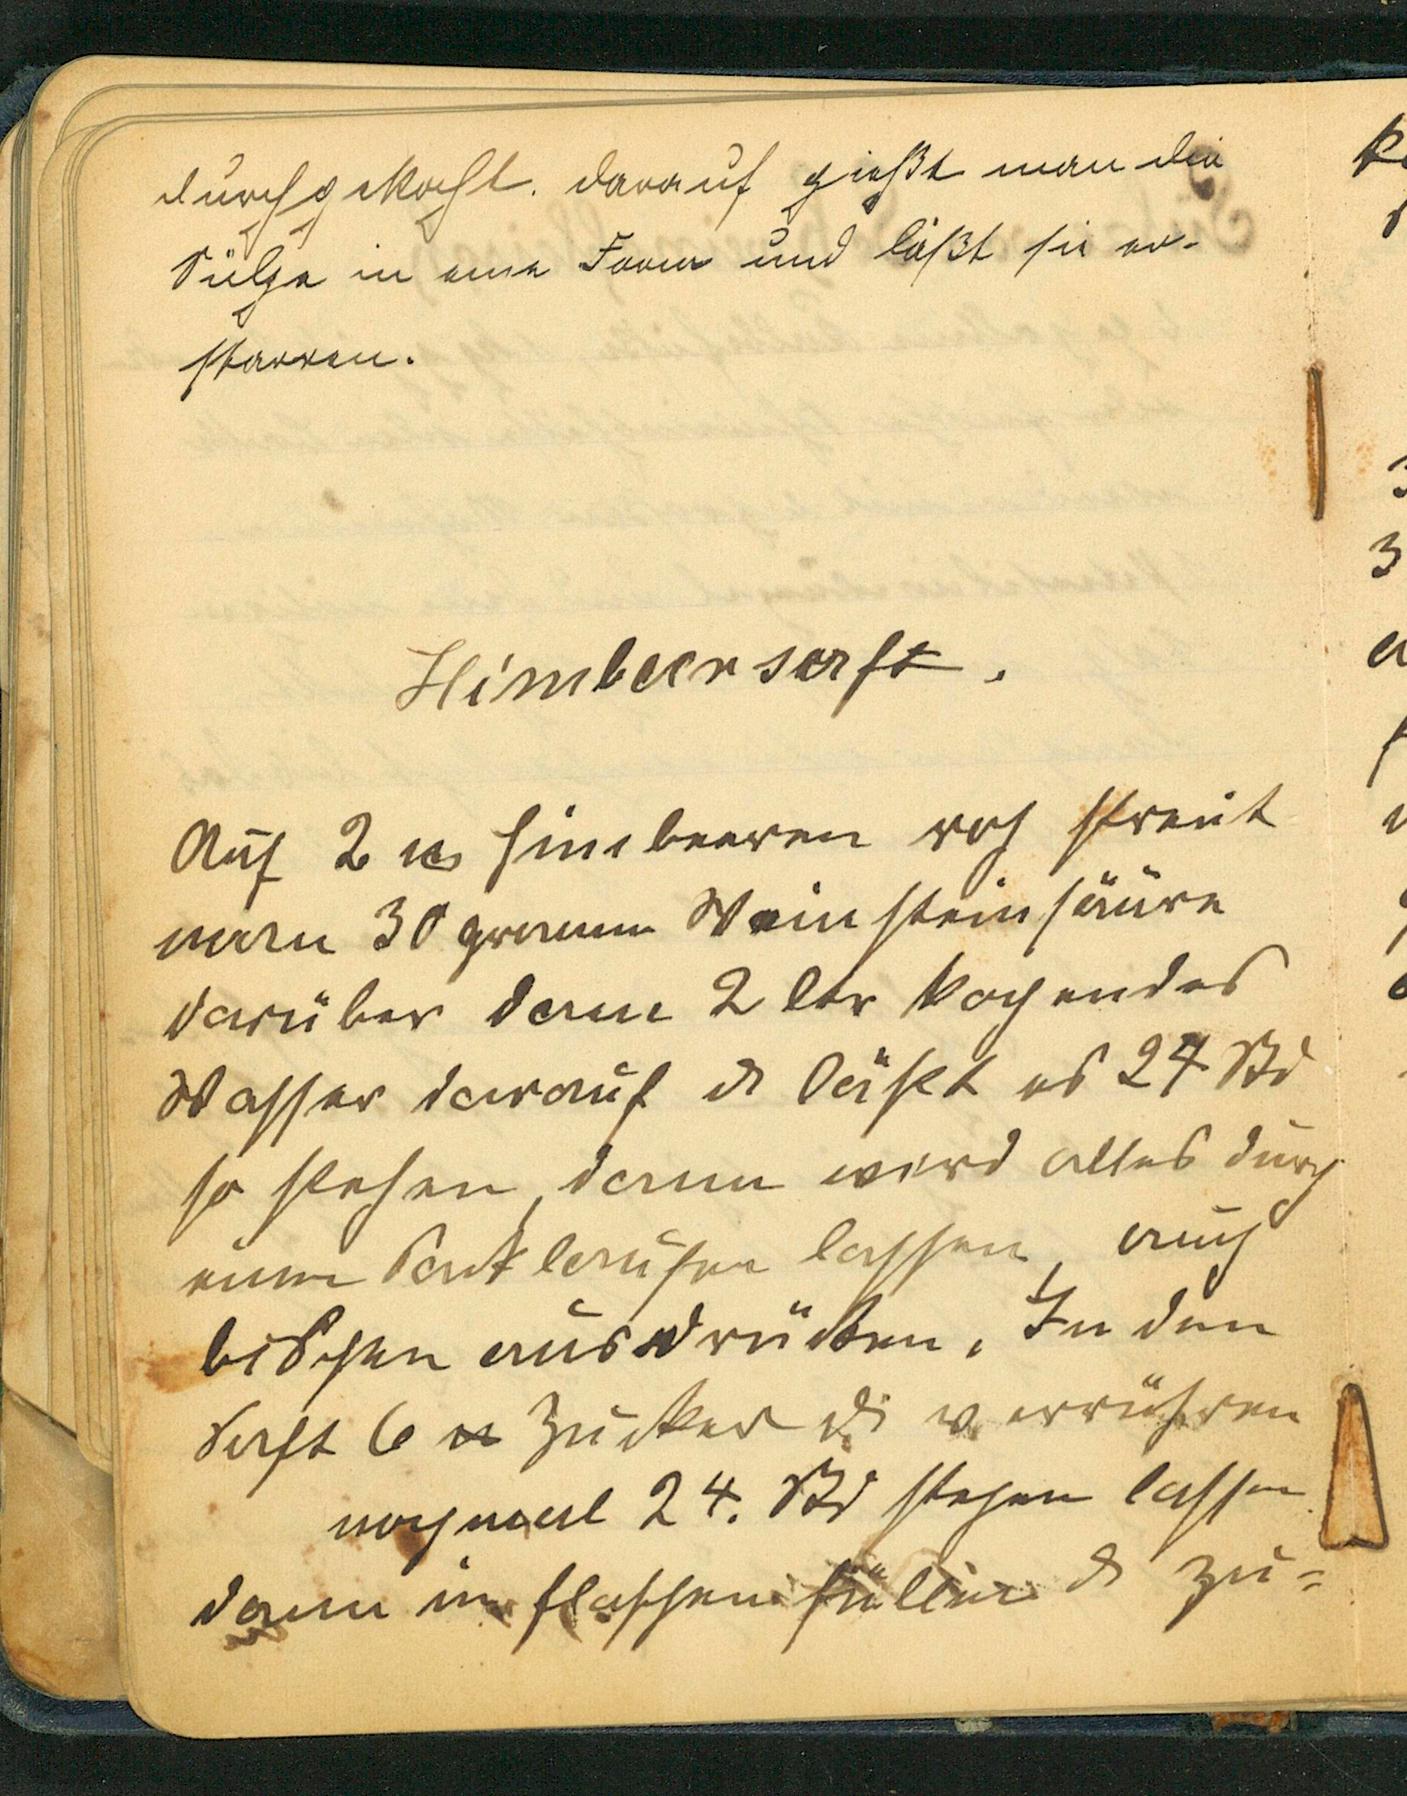 durchgekocht. darauf gießt man die
Sülze in eine Form und läßt sie er-
starren.
Himbeersaft.
Auf 2 ℔ Himbeeren roh streut
man 30 gramm Weinsteinsäure
darüber dann 2 ltr kochendes
Wasser darauf & läßt es 24 Std
so stehen, dann wird alles durch
einen lassen, auch
bischen ausdrücken. In den
Saft 6 ℔ Zucker & verrühren
nochmal 24. Std stehen lassen
dann in flaschen füllen & zu=